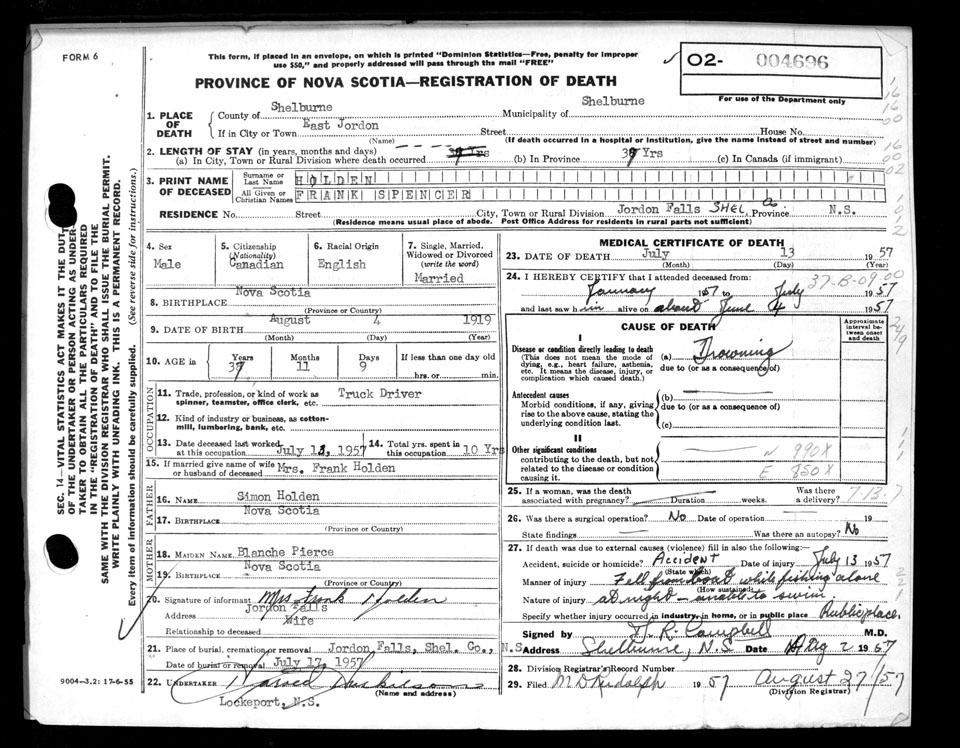 FORM 6
This form, if placed in an envelope, on which is printed "Dominion Statistics—Free, penalty for improper
use $50," and properly addressed will pass through the mail "FREE"
PROVINCE OF NOVA SCOTIA—REGISTRATION OF DEATH
O2- 004696
For use of the Department only
SEC. 14—VITAL STATISTICS ACT MAKES IT THE DUTY
OF THE UNDERTAKER OR PERSON ACTING AS UNDER-
TAKER TO OBTAIN ALL THE PARTICULARS REQUIRED
IN THE "REGISTRATION OF DEATH" AND TO FILE THE
SAME WITH THE DIVISION REGISTRAR WHO SHALL ISSUE THE BURIAL PERMIT.
WRITE PLAINLY WITH UNFADING INK. THIS IS A PERMANENT RECORD.
Every item of information should be carefully supplied. (See reverse side for instructions.)
1. PLACE OF DEATH
County of Shelburne Municipality of Shelburne
If in City or Town East Jordon Street House No.
(Name) (If death occurred in a hospital or institution, give the name instead of street and number)
2. LENGTH OF STAY (in years, months and days)
(a) In City, Town or Rural Division where death occurred (b) In Province 37 Yrs (c) In Canada (if immigrant)
3. PRINT NAME OF DECEASED
Surname or Last Name HOLDEN
All Given or Christian Names FRANK SPENCER
RESIDENCE No. Street City, Town or Rural Division Jordon Falls SHEL Co. Province N.S.
(Residence means usual place of abode. Post Office Address for residents in rural parts not sufficient)
4. Sex
Male
5. Citizenship (Nationality)
Canadian
6. Racial Origin
English
7. Single, Married, Widowed or Divorced (write the word)
Married
8. BIRTHPLACE Nova Scotia
(Province or Country)
9. DATE OF BIRTH August 4 1919
(Month) (Day) (Year)
10. AGE in Years 37 Months 11 Days 9 If less than one day old
hrs. or min.
OCCUPATION
11. Trade, profession, or kind of work as spinner, teamster, office clerk, etc. Truck Driver
12. Kind of industry or business, as cotton-mill, lumbering, bank, etc.
13. Date deceased last worked at this occupation July 13, 1957
14. Total yrs. spent in this occupation 10 Yrs
15. If married give name of wife or husband of deceased Mrs. Frank Holden
FATHER
16. NAME Simon Holden
17. BIRTHPLACE Nova Scotia
(Province or Country)
MOTHER
18. MAIDEN NAME Blanche Pierce
19. BIRTHPLACE Nova Scotia
(Province or Country)
20. Signature of informant Mrs Frank Holden
Address Jordon Falls
Relationship to deceased Wife
21. Place of burial, cremation or removal Jordon Falls, Shel. Co., N.S.
Date of burial or removal July 17, 1957
22. UNDERTAKER
(Name and address)
Lockeport, N.S.
9004—3.2: 17-6-55
MEDICAL CERTIFICATE OF DEATH
23. DATE OF DEATH July 13 1957
(Month) (Day) (Year)
37-B-09.00
24. I HEREBY CERTIFY that I attended deceased from:
January 1957 to July 1957
and last saw him alive on about June 4 1957
CAUSE OF DEATH
Approximate interval between onset and death
I
Disease or condition directly leading to death
(This does not mean the mode of dying, e.g., heart failure, asthenia, etc. It means the disease, injury, or complication which caused death.)
(a) Drowning
due to (or as a consequence of)
Antecedent causes
Morbid conditions, if any, giving rise to the above cause, stating the underlying condition last.
(b)
due to (or as a consequence of)
(c)
II
Other significant conditions
contributing to the death, but not related to the disease or condition causing it.
N 990X
E 850X
25. If a woman, was the death associated with pregnancy? Duration weeks. Was there a delivery?
7-13-7
26. Was there a surgical operation? No Date of operation 19
State findings Was there an autopsy? No
27. If death was due to external causes (violence) fill in also the following:—
Accident, suicide or homicide? Accident Date of injury July 13 1957
(State which)
Manner of injury Fell from boat while fishing alone
(How sustained)
Nature of injury at night – unable to swim.
Specify whether injury occurred in industry, in home, or in public place Public place.
Signed by R. Campbell M.D.
Address Shelburne, N.S. Date Aug 2 1957
28. Division Registrar's Record Number
29. Filed M D Rudolph 1957 August 27/57
(Division Registrar)